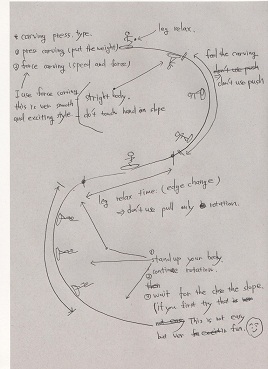 * carving press. type.
① press carving (put the weight)
② force carving (speed and force)
leg relax.
feel the carving
don't use push
don't use push
I use force carving
this is very smooth
and exciting style
stright body.
don't touch hand on slope
leg relax time. (edge change)
→ don't use pull only rotation.
①
stand up your body
continue rotation.
②
then
③ wait for the the slope.
(if you first try that is
not easy This is not easy
but is fun.